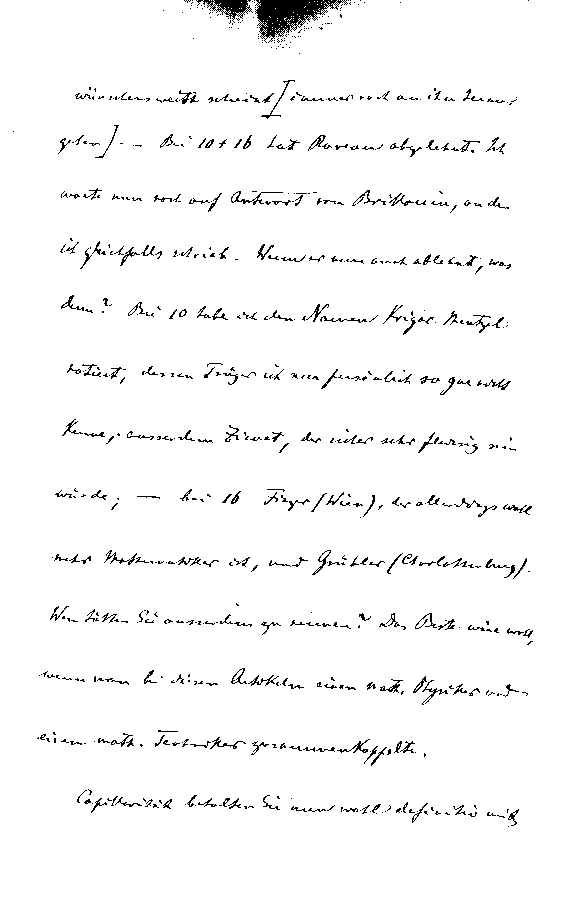 wünschenswerth scheint [immer noch an ihn
gehen]. — Bei 10 + 16 hat Raveau abgelehnt. Ich
warte nun noch auf Antwort von Brillouin, an den
ich gleichfalls schrieb. Wenn er nun auch ablehnt, was
dann? Bei 10 habe ich den Namen Krigar-Menzel
notiert, dessen Träger ich nun persönlich so gar nicht
kenne, ausserdem Ziwet, der sicher sehr fleissig sein
würde; — bei 16 Finger (Wien), der allerdings wohl
mehr Mathematiker ist, und Grübler (Charlottenburg).
Wen hätten Sie ausserdem zu nennen? Das Beste wäre wohl,
wenn man bei diesen Artikeln einen math. Physiker und
einen math. Techniker zusammenkoppelte.
Capillarität behalten Sie nun wohl definitiv mit